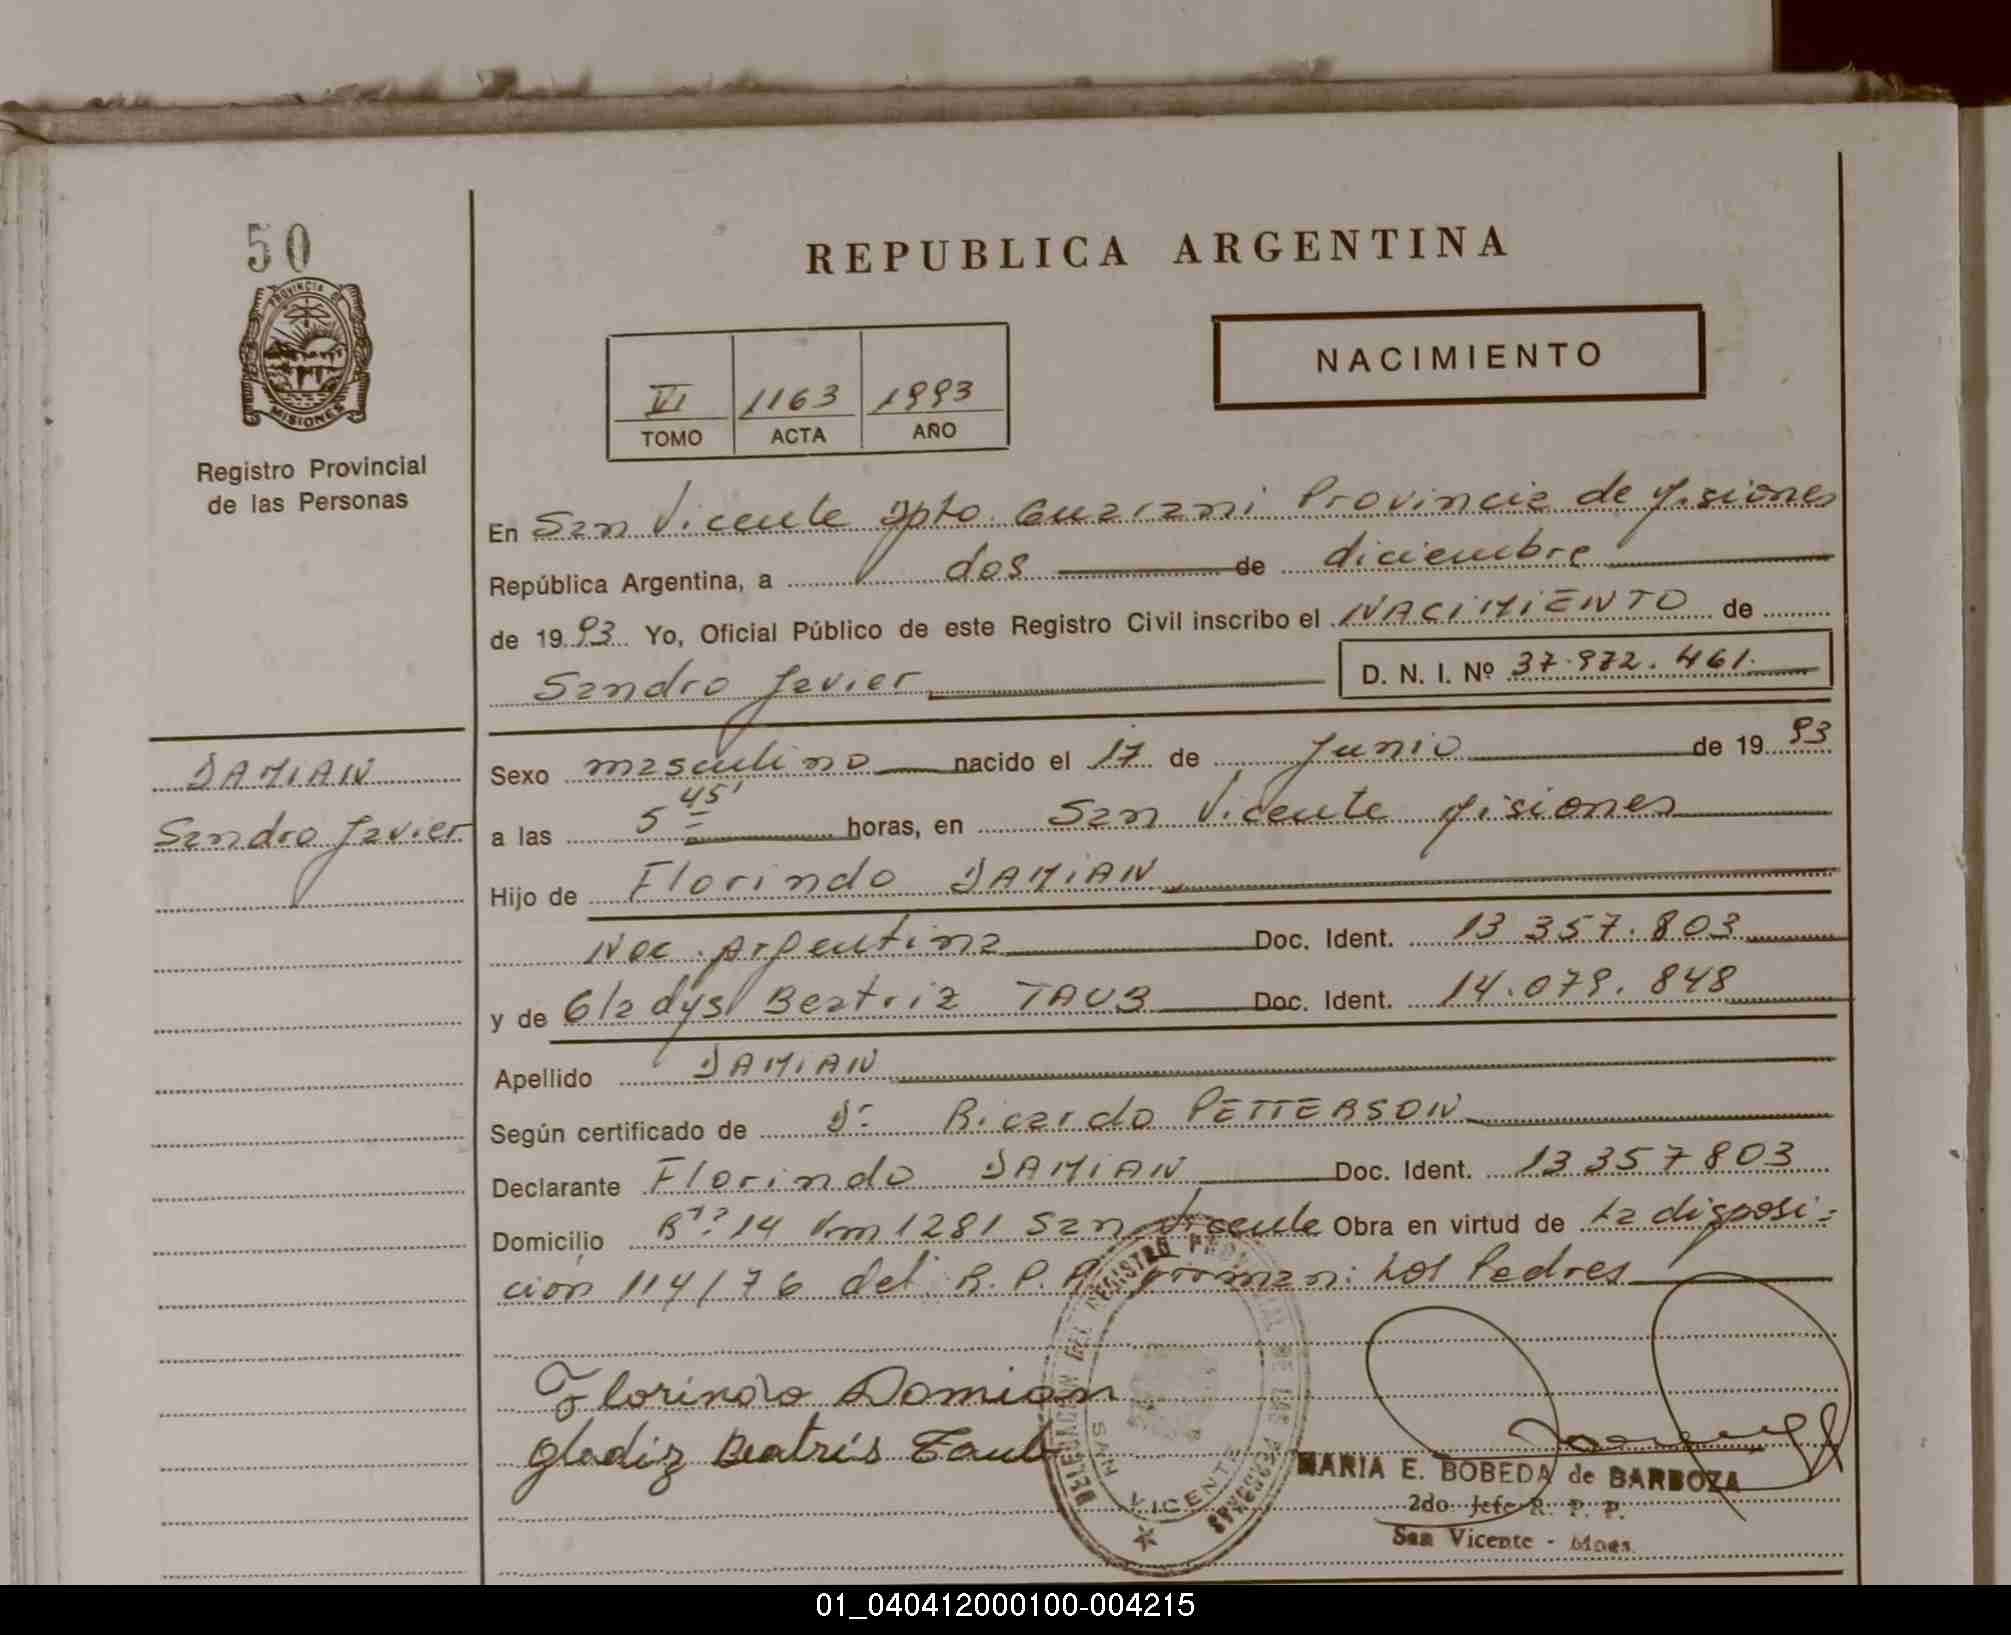 50
PROVINCIA DE
MISIONES
Registro Provincial
de las Personas
DAMIAN
Sandro Javier
REPUBLICA ARGENTINA
NACIMIENTO
VI 1163 1993
TOMO ACTA AÑO
En San Vicente Dpto. Guarani Provincia de Misiones
República Argentina, a dos de diciembre
de 1993 Yo, Oficial Público de este Registro Civil inscribo el NACIMIENTO de
Sandro Javier D. N. I. Nº 37.972.461.
Sexo masculino nacido el 17 de Junio de 1993
a las 5 45' horas, en San Vicente Misiones
Hijo de Florindo DAMIAN
Nac. Argentina Doc. Ident. 13 357.803
y de Gladys Beatriz TAUB Doc. Ident. 14.079.848
Apellido DAMIAN
Según certificado de Dr Ricardo PETTERSON
Declarante Florindo DAMIAN Doc. Ident. 13 357 803
Domicilio R 14 Km 1281 San Vicente Obra en virtud de la disposi-
ción 114/76 del R. P. P. firman: Los Padres
Florindo Domian
Gladiz Beatris Taub
DELEGACION DEL REGISTRO PROVINCIAL DE LAS PERSONAS
SAN VICENTE
MARIA E. BOBEDA de BARBOZA
2do Jefe R. P. P.
San Vicente - Mnes.
01_040412000100-004215